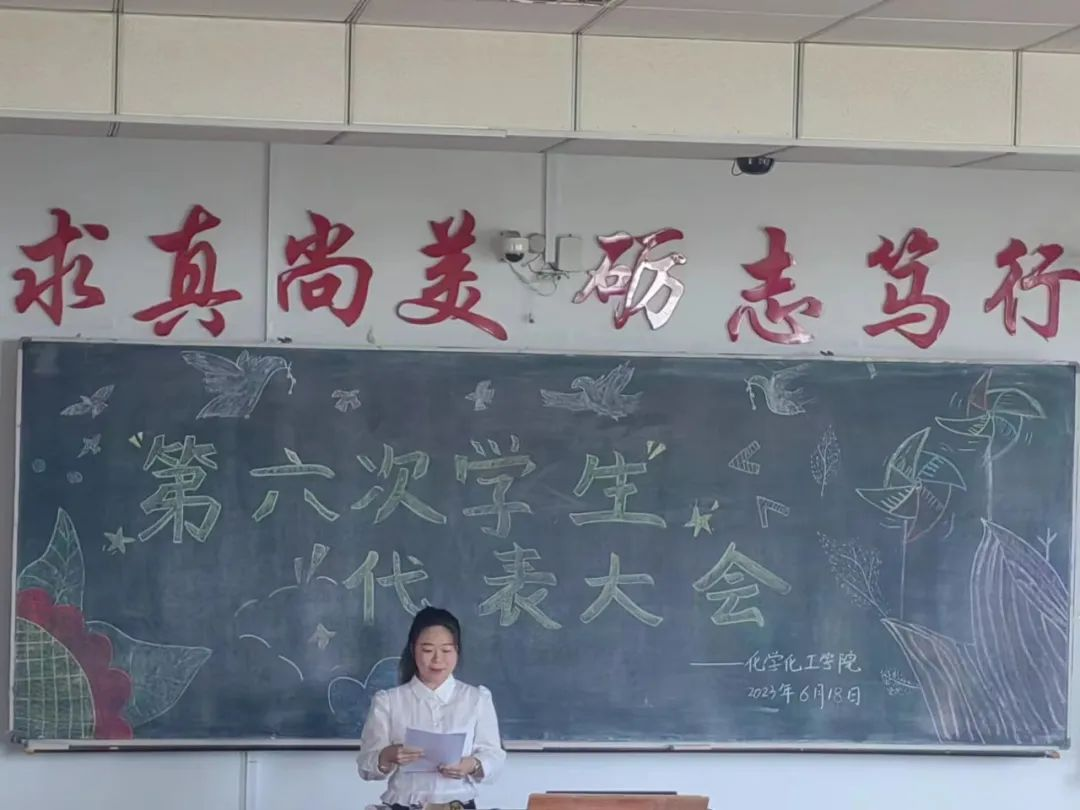 求真尚美 砺志笃行
第六次学生
代表大会
——化学化工学院
2023年6月18日